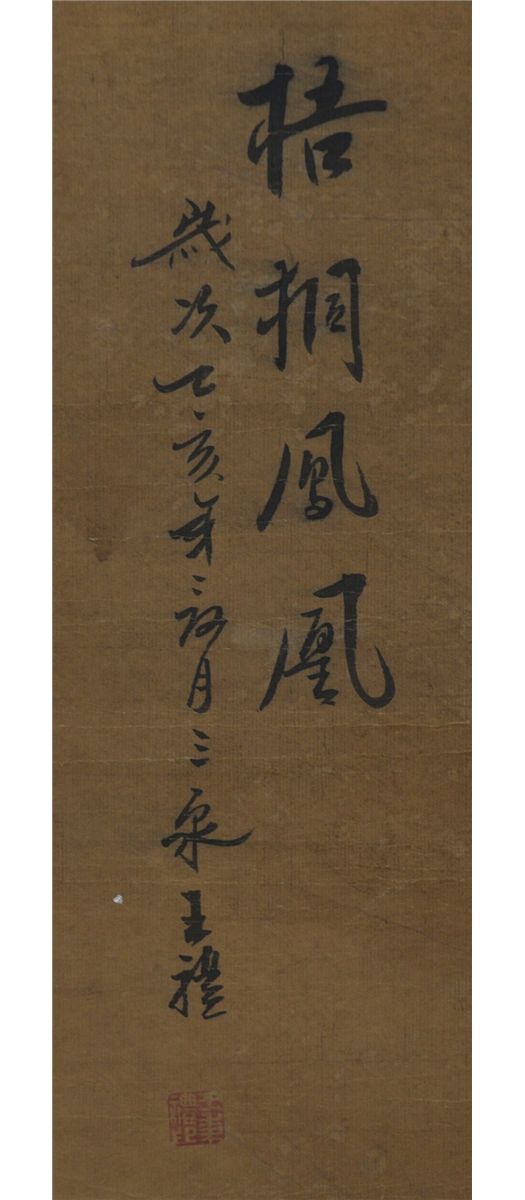 梧桐鳳凰
歲次乙亥年月三泉王禮